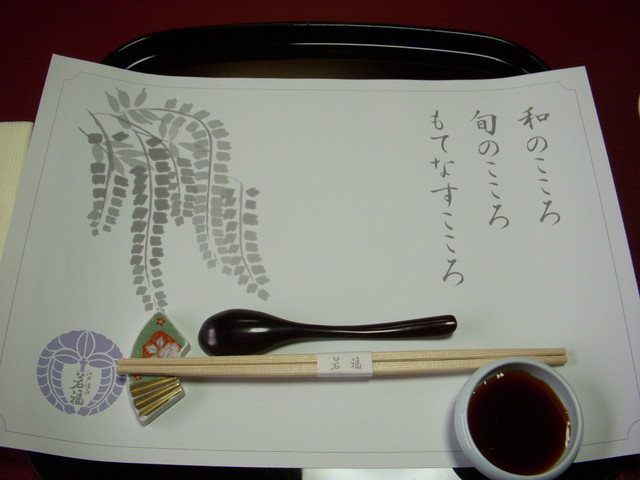 和のこころ
旬のこころ
もてなすこころ
若福
若福